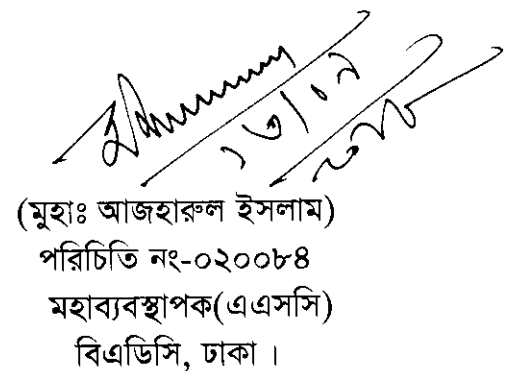 (মুহাঃ আজহারুল ইসলাম)
পরিচিতি নং-০২০০৮৪
মহাব্যবস্থাপক(এএসসি)
বিএডিসি, ঢাকা ।